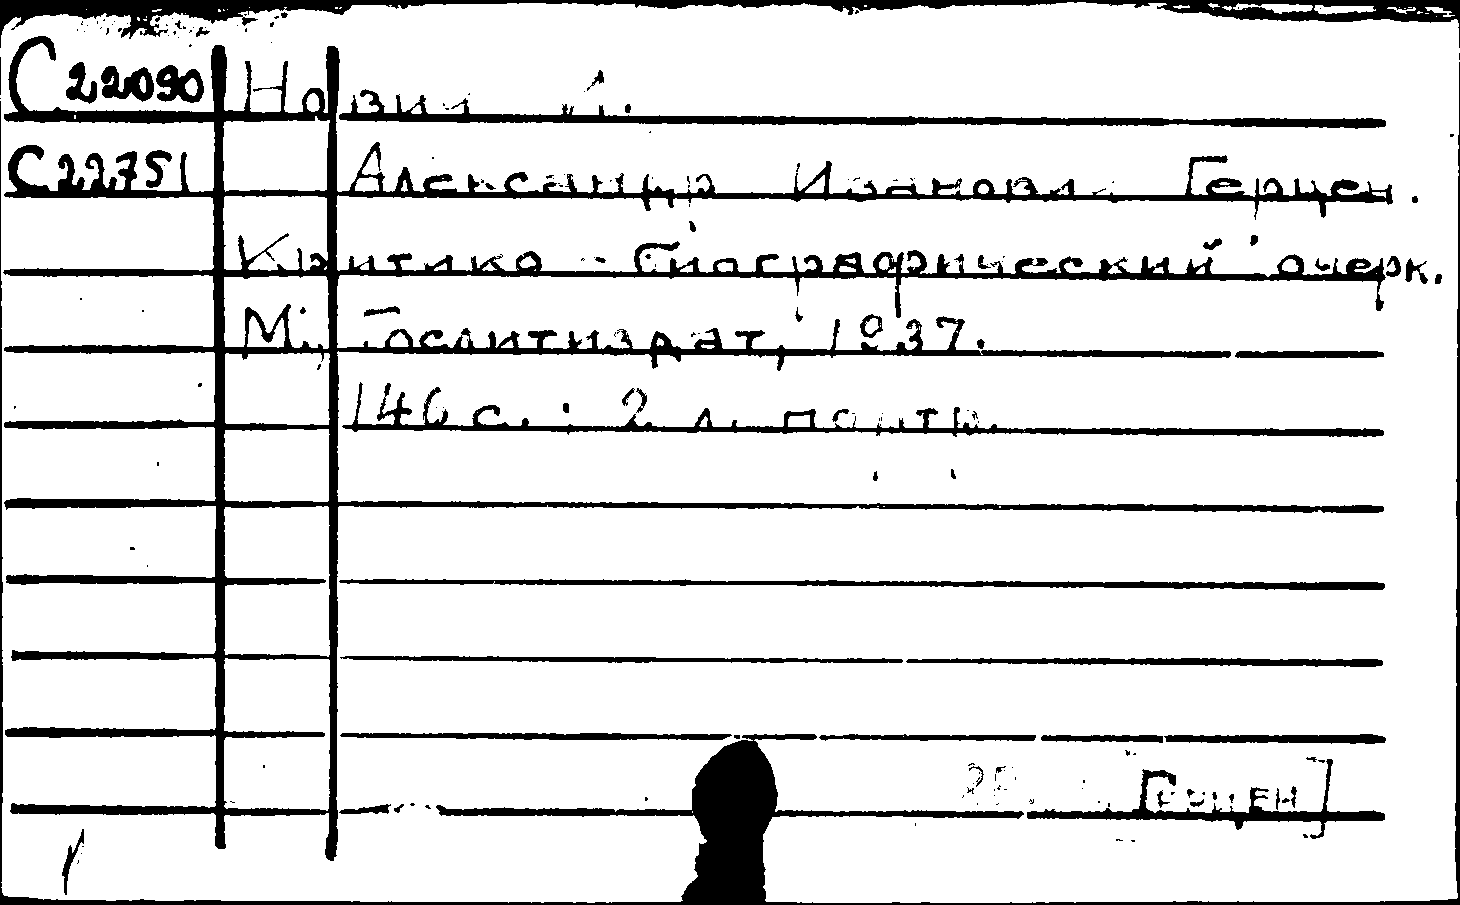 С22090 Новик И.
С22751 Александр Иванович Герцен.
Критико-биографический очерк.
М., Гослитиздат, 1937.
146 с.; 2 л. портр.
[Герцен]